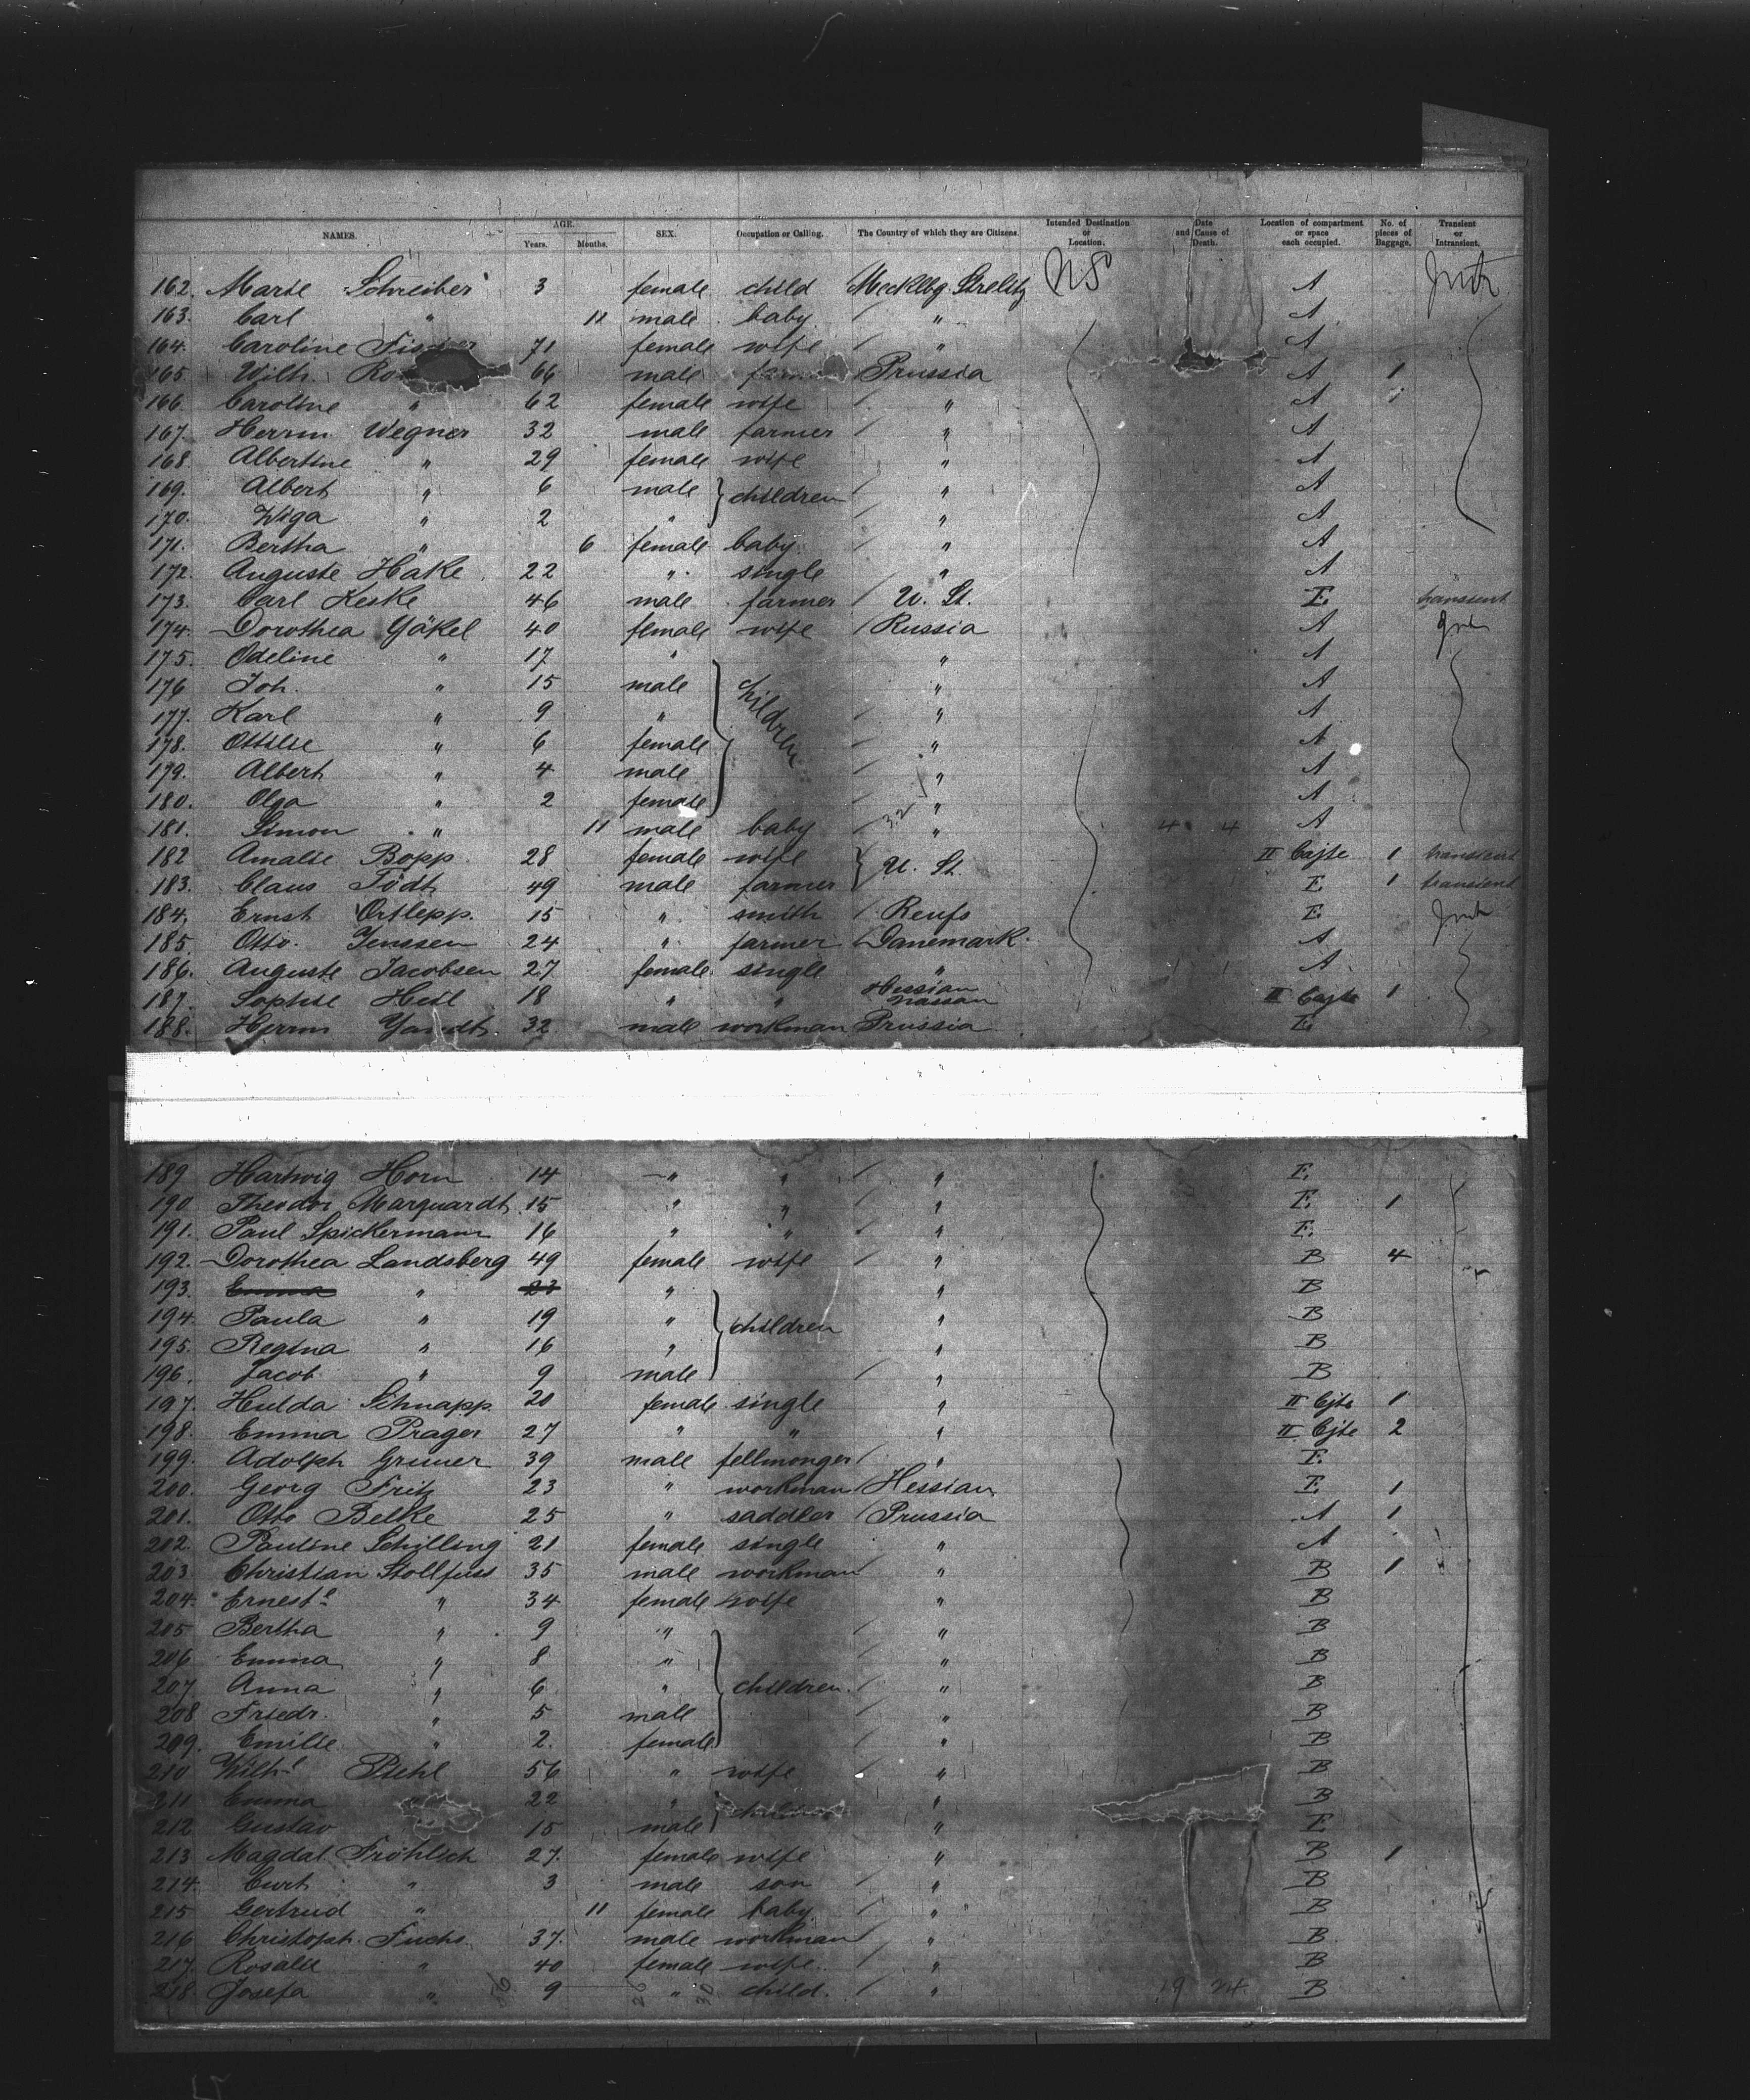 NAMES. AGE. Years. Months. SEX. Occupation or Calling. The Country of which they are Citizens. Intended Destination or Location. Date and Cause of Death. Location of compartment or space each occupied. No. of pieces of Baggage. Transient or Intransient.
162. Marie Schreiber 3 female child Mecklbg. Strelitz US A
163. Carl " 11 male baby " A
164. Caroline 71 female wife " A
165. Wilh. 66 male Prussia A 1
166. Caroline " 62 female wife " A 1
167. Herrm. Wegner 32 male farmer " A
168. Albertine " 29 female wife " A
169. Albert " 6 male } children " A
170. " 2 " " A
171. Bertha " 6 female baby " A
172. Auguste Hake 22 " single " A
173. Carl Keske 46 male farmer U. St. E. transient
174. Dorothea Jäkel 40 female wife Russia A
175. Odeline " 17 " " A
176 Joh. " 15 male } children " A
177. Karl " 9 " " A
178. Ottilie " 6 female " A
179. Albert " 4 male " A
180. Olga " 2 female " A
181. Simon " 11 male baby " 4 4 A
182 Amalie Bopp. 28 female wife } U. St. II Cajte 1 transient
183. Claus Tödt 49 male farmer E. 1 transient
184. Ernst Ortlepp. 15 " smith Reufs E.
185. Otto. Jenssen 24 " farmer Danemark. A
186. Auguste Jacobsen 27 female single " A
187. Sophie Heil 18 " " Hessian Nassau II Cajte 1
188. Herrm Yandt. 32 male workman Prussia E.
189 Hartwig Horn 14 " " " E.
190 Theodor Marquardt. 15 " " " E. 1
191. Paul Spickermann 16 " " " E.
192. Dorothea Landsberg 49 female wife " B 4
193. Emma " 23 " " B
194. Paula " 19 " } children " B
195. Regina " 16 " " B
196. Jacob " 9 male " B
197. Hulda Schnapp. 20 female single " II Cjte 1
198. Emma Prager 27 " " " II Cjte 2
199. Adolph Gruner 39 male fellmonger " E.
200. Georg Fritz 23 " workman Hessian E. 1
201. Otto Belke 25 " saddler Prussia A 1
202. Pauline Schilling 21 female single " A
203. Christian Stollfuss 35 male workman " B 1
204. Ernest.e " 34 female wife " B
205 Bertha " 9 " " B
206 Emma " 8 " } children. " B
207. Anna " 6 " " B
208 Friedr. " 5 male " B
209. Emilie " 2. female " B
210 Wilh.e Piehl 56 " wife " B
211 Emma " 22 " } children " B
212 Gustav 15 male " E
213 Magdal. Fröhlich 27. female wife " B 1
214 Curt " 3 male son " B
215 Gertrud " 11 female baby. " B
216 Christoph. Fuchs. 37. male workman " B
217. Rosalie " 40 female wife. " B
218. Josefa " 9 " child. " 19 24 B